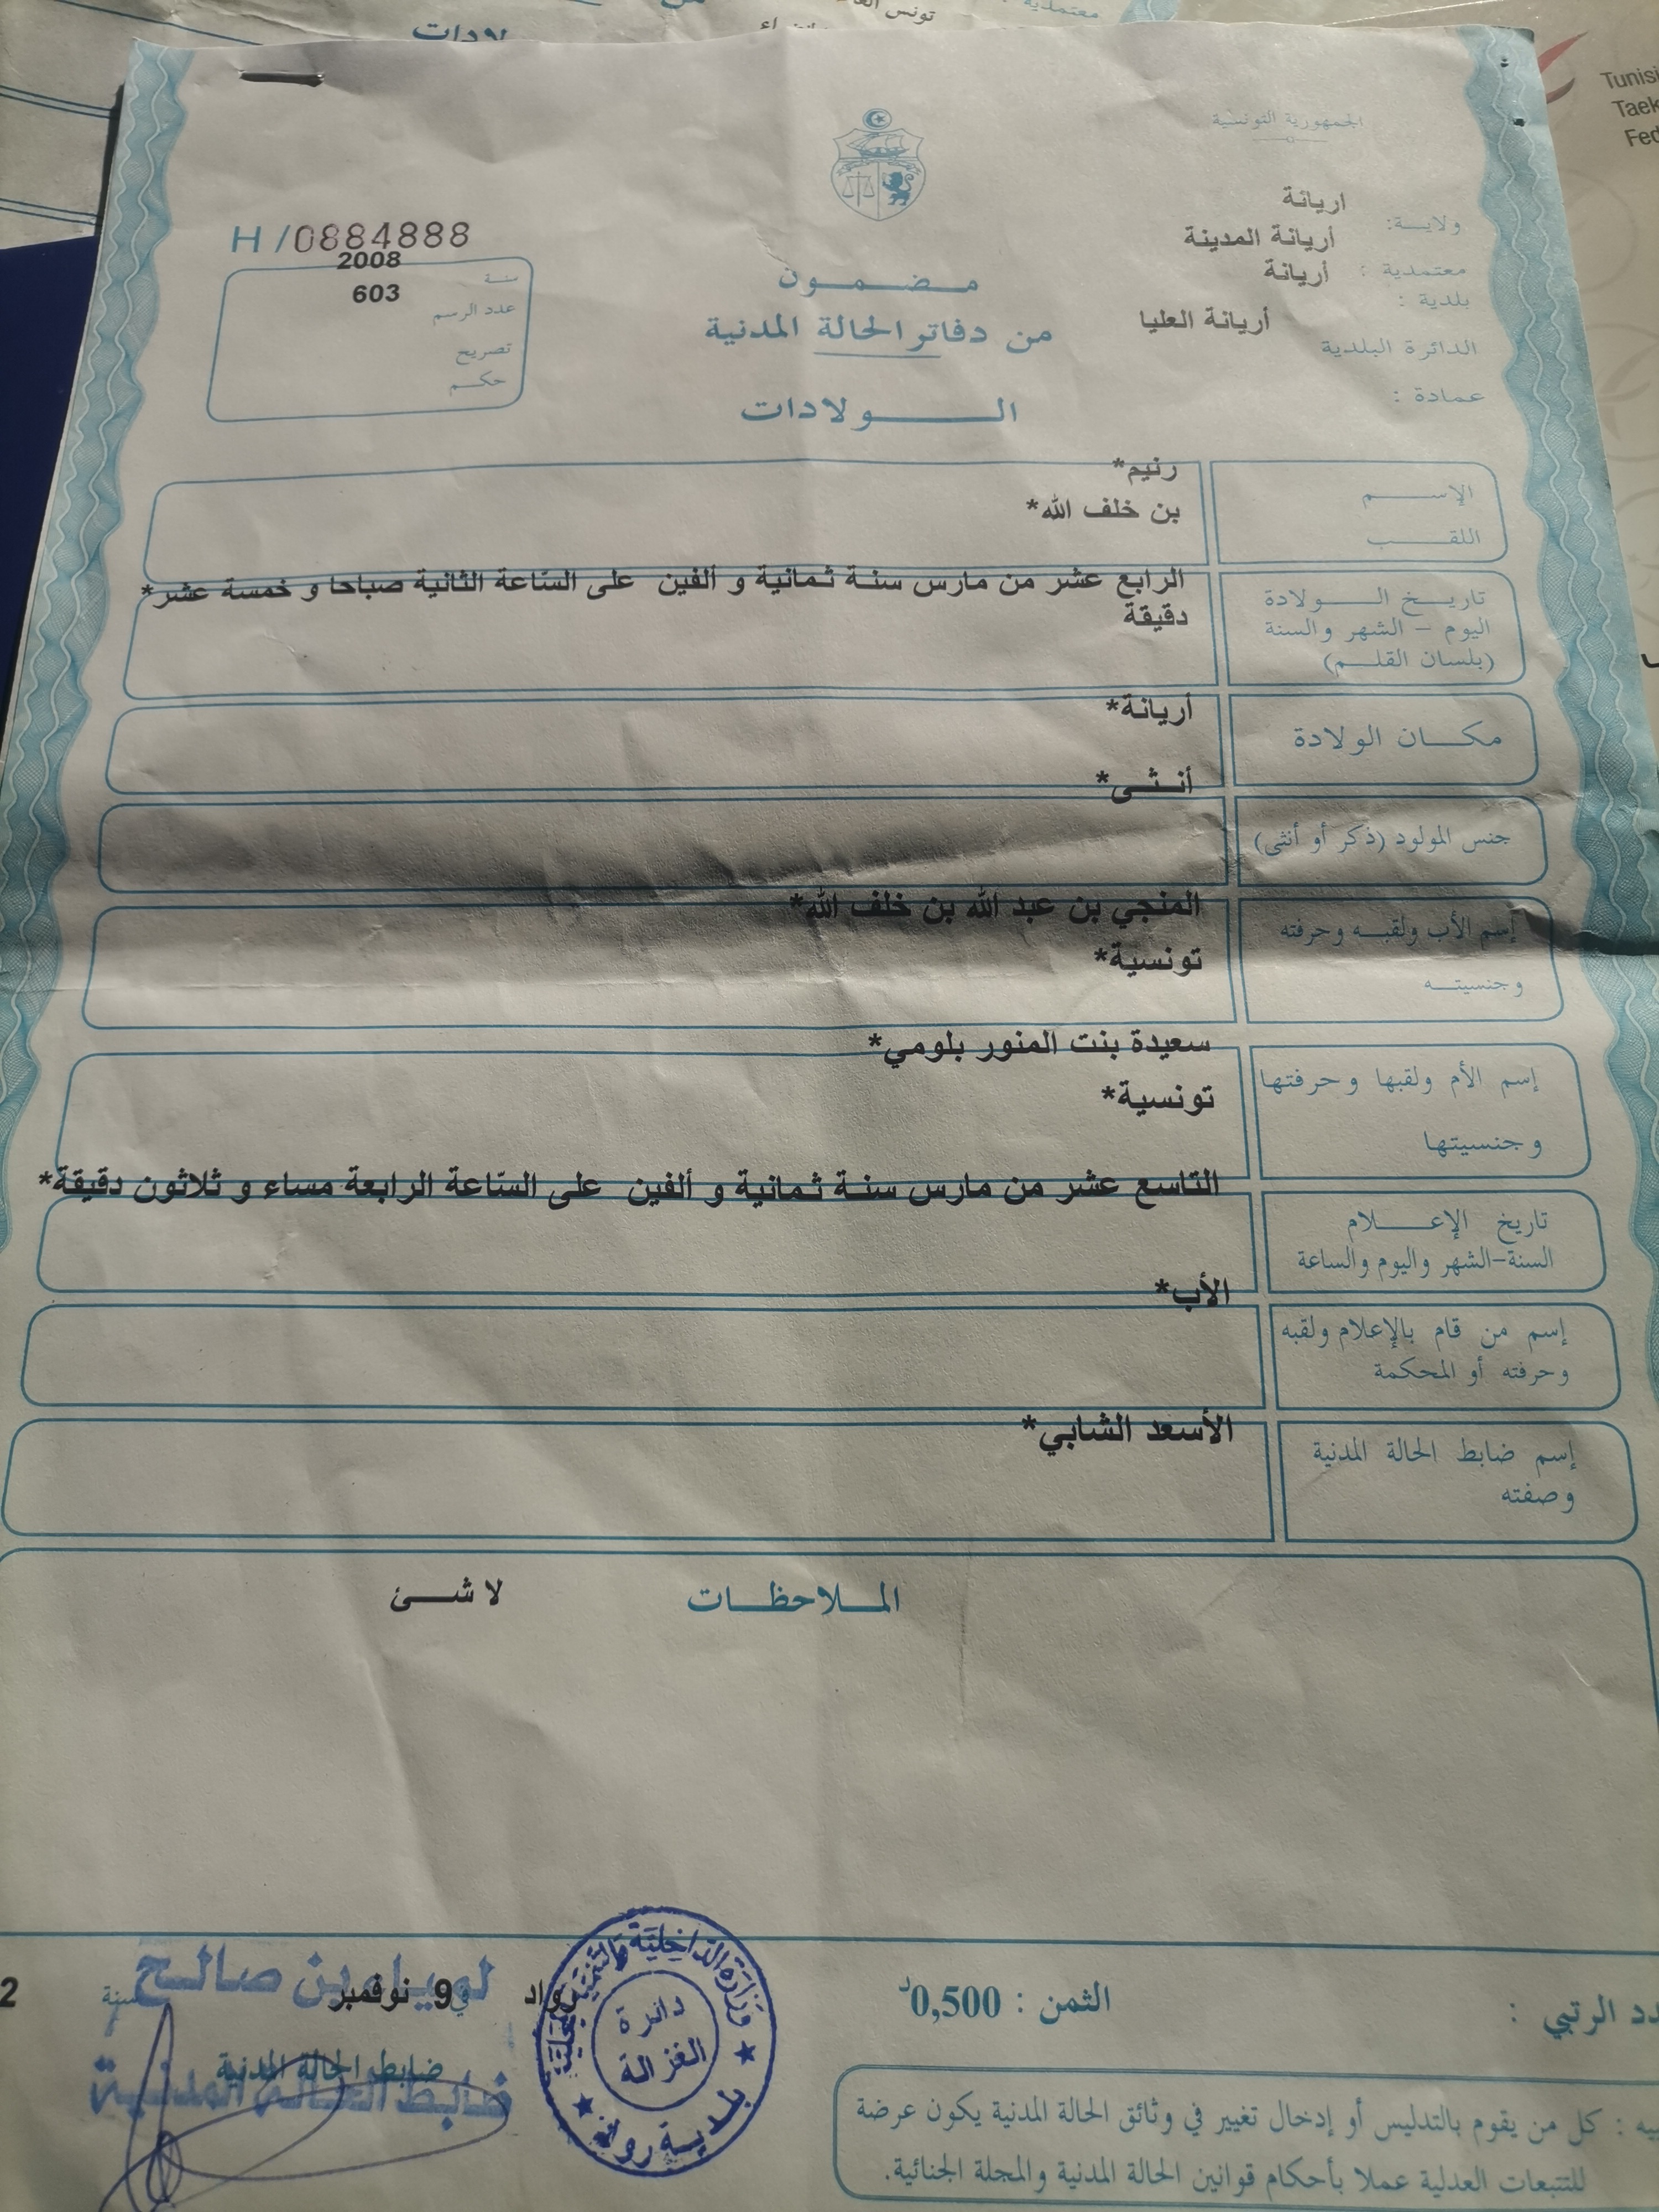 الجمهورية التونسية
ولايـــة: اريانة
معتمدية : أريانة المدينة
بلدية : أريانة
الدائرة البلدية أريانة العليا
عمادة :
H /0884888
سنة 2008
عدد الرسم 603
تصريح
حكـــم
مـضـمـــون
من دفاتر الحالة المدنية
الـــولادات
الإســـــم رنيم*
اللقـــــب بن خلف الله*
تاريـــخ الـــــولادة الرابع عشر من مارس سنة ثمانية و ألفين على السّاعة الثانية صباحا و خمسة عشر*
اليوم – الشهر والسنة دقيقة
(بلسان القلـــم)
مكـــان الولادة أريانة*
أنـــثى*
جنس المولود (ذكر أو أنثى)
إسم الأب ولقبـــه وحرفته المنجي بن عبد الله بن خلف الله*
وجنسيتـــه تونسية*
إسم الأم ولقبها وحرفتها سعيدة بنت المنور بلومي*
وجنسيتها تونسية*
تاريخ الإعـــــلام التاسع عشر من مارس سنة ثمانية و ألفين على السّاعة الرابعة مساء و ثلاثون دقيقة*
السنة–الشهر واليوم والساعة
إسم من قام بالإعلام ولقبه الأب*
وحرفته أو المحكمة
إسم ضابط الحالة المدنية الأسعد الشابي*
وصفته
المـــلاحظـــات لا شـــئ
الثمن : 0,500د
رواد في 9 نوفمبر سنة 2
بن صالح
ضابط الحالة المدنية
ضابط الحالة المدنيـة
وزارة الداخلية والتنمية المحلية
دائرة
الغزالة
بلدية رواد
الرتبي :
كل من يقوم بالتدليس أو إدخال تغيير في وثائق الحالة المدنية يكون عرضة
للتتبعات العدلية عملا بأحكام قوانين الحالة المدنية والمجلة الجنائية.